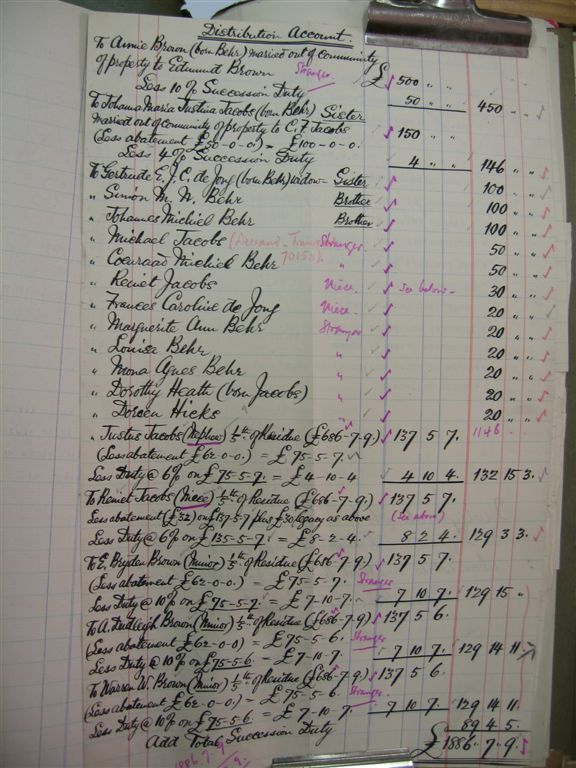 Distribution Account.
To Annie Brown (born Behr) married out of community
of property to Edmund Brown Stranger £ 500 " "
Less 10% Succession Duty 50 " " 450 " "
To Johanna Maria Justina Jacobs (born Behr) Sister
married out of community of property to C. F. Jacobs 150 " "
(Less abatement £50-0-0.) = £100-0-0.
Less 4% Succession Duty 4 " " 146 " "
To Gertruida E. J. C. de Jong (born Behr) widow - Sister 100 " "
" Simon M. N. Behr Brother 100 " "
" Johannes Michiel Behr Brother 100 " "
" Michael Jacobs Stranger 50 " "
" Coenraad Michiel Behr " 50 " "
" Reniet Jacobs Niece. see below - 30 " "
" Frances Caroline de Jong Niece. 20 " "
" Marguerite Ann Behr Stranger 20 " "
" Louisa Behr " 20 " "
" Mona Agnes Behr " 20 " "
" Dorothy Heath (born Jacobs) " 20 " "
" Doreen Hicks " 20 " "
" Justus Jacobs (Nephew) 1/5 th of Residue (£686-7-9.) 137 5 7. 1146
(Less abatement £62-0-0.) = £75-5-7.
Less Duty @ 6% on £75-5-7. = £4-10-4 4 10 4. 132 15 3.
To Reniet Jacobs (Niece) 1/5 th of Residue (£686-7-9.) 137 5 7.
Less abatement (£32) on £137-5-7 plus £30 legacy as above (see above)
Less Duty @ 6% on £135-5-7. = £8-2-4. 8 2 4. 129 3 3.
To E. Bryden Brown (Minor) 1/5 th of Residue (£686-7-9) 137 5 7.
(Less abatement £62-0-0.) = £75-5-7. Stranger
Less Duty @ 10% on £75-5-7. = £7-10-7. 7 10 7. 129 15 "
To A. Dudleigh Brown (Minor) 1/5 th of Residue (£686-7-9) 137 5 6.
(Less abatement £62-0-0) = £75-5-6. Stranger
Less Duty @ 10% on £75-5-6. = £7-10-7. 7 10 7. 129 14 11.
To Warren W. Brown (Minor) 1/5 th of Residue (£686-7-9.) 137 5 6.
(Less abatement £62-0-0.) = £75-5-6. Stranger.
Less Duty @ 10% on £75-5-6. = £7-10-7. 7 10 7. 129 14 11.
Add Total Succession Duty 89 4 5.
£1886.7.9.